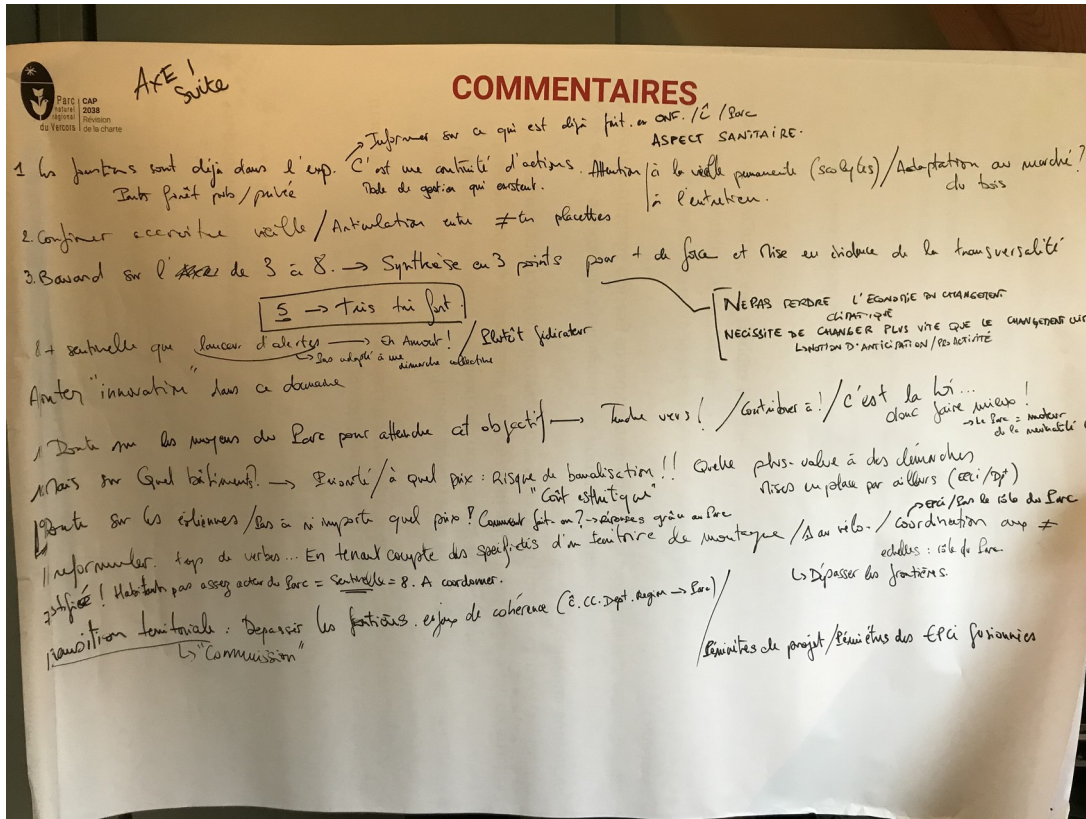 Parc naturel régional du Vercors
CAP 2038 Révision de la charte
AXE 1 suite
COMMENTAIRES
Informer sur ce qui est déjà fit. en ONF. / Parc
ASPECT SANITAIRE.
1 les sont déjà dans l'exp. C'est une continuité d'actions. Attention / à la veille permanente (scolytes) / Adaptation au marché ? du bois
forêt pub / privée Mode de gestion qui existent. / à l'entretien.
2. Confirmer accroître veille / Articulation entre ≠ placettes
3. sur l' de 3 à 8. → Synthèse en 3 points pour + de force et Mise en évidence de la transversalité
5 → très très fort.
NE PAS PERDRE L'ECONOMIE DU CHANGEMENT CLIMATIQUE
NECESSITE DE CHANGER PLUS VITE QUE LE CHANGEMENT
NOTION D'ANTICIPATION / PROACTIVITÉ
8 + sentinelle que lanceur d'alertes → En Amont ! / Plutôt fédérateur
Pas adapté à une démarche collective
Ajouter "innovation" dans ce domaine
Doute sur les moyens du Parc pour atteindre cet objectif → Tendre vers ! / Contribuer à ! / C'est la loi... donc faire mieux !
→ le Parc = moteur de la neutralité
Mais sur Quel bâtiments? → Priorité / à quel prix : Risque de banalisation !! Quelle plus-value à des démarches
"Coût esthétique" Mises en place par ailleurs (EPCi / Dpt)
Doute sur les éoliennes / Pas à n'importe quel prix ? Comment fait-on ? → Réponses grâce au Parc
reformuler. trop de verbes... En tenant compte des spécificités d'un territoire de montagne / au vélo. / coordination aux ≠ echelles : rôle du Parc.
EPCI / Pas le rôle du Parc
↳ Dépasser les frontières.
! Habitants pas assez acteur du Parc = Sentinelle = 8. A coordonner.
transition territoriale : Depasser les frontières. enjeux de cohérence (CC. Dept. Région → Parc)
↳ "Commission"
/ Périmètres de projet / Périmètres des EPCi fusionnées